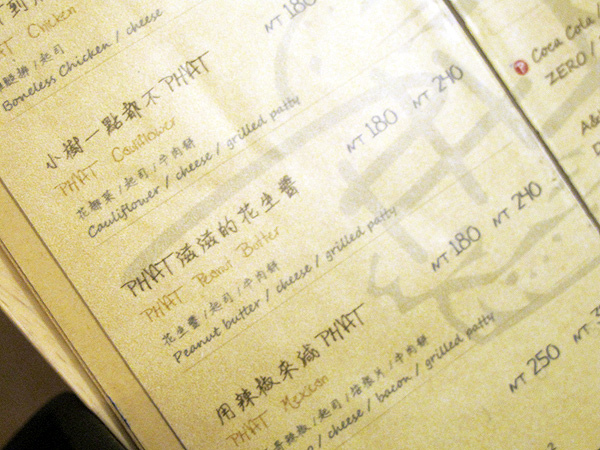 PHAT Chicken
Boneless Chicken / cheese
NT 180
小樹一點都不PHAT
PHAT Cauliflower
花椰菜/起司/牛肉餅
Cauliflower / cheese / grilled patty
NT 180 NT 240
PHAT滋滋的花生醬
PHAT Peanut Butter
花生醬/起司/牛肉餅
Peanut butter / cheese / grilled patty
NT 180 NT 240
用辣椒來減PHAT
PHAT Mexican
辣椒/起司/培根片/牛肉餅
/ cheese / bacon / grilled patty
NT 250
P Coca Cola /
ZERO /